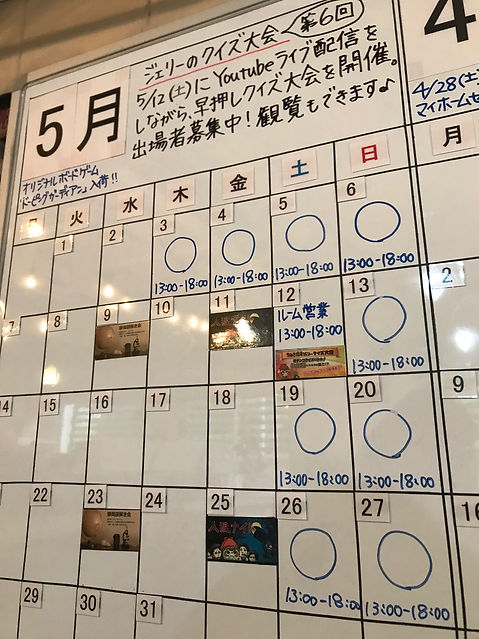 ジェリーのクイズ大会 第6回
5/12(土)にYoutubeライブ配信を
しながら、早押しクイズ大会を開催。
出場者募集中！観覧もできます♪
5月
オリジナルボードゲーム
ドーピングガーディアン」入荷!!
火 水 木 金 土 日
1 2 3 4 5 6
13:00-18:00 13:00-18:00 13:00-18:00 13:00-18:00
7 8 9 10 11 12 13
ルーム営業
13:00-18:00
13:00-18:00
人狼ナイト
14 15 16 17 18 19 20
13:00-18:00 13:00-18:00
22 23 24 25 26 27
人狼ナイト
13:00-18:00 13:00-18:00
29 30 31
4
4/28(土)
マイホームセ
月
2
9
16